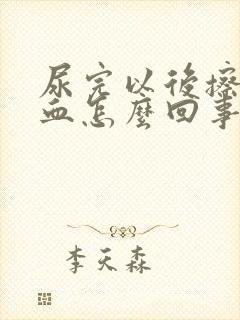 尿完以後擦
血怎麼回事
李天森